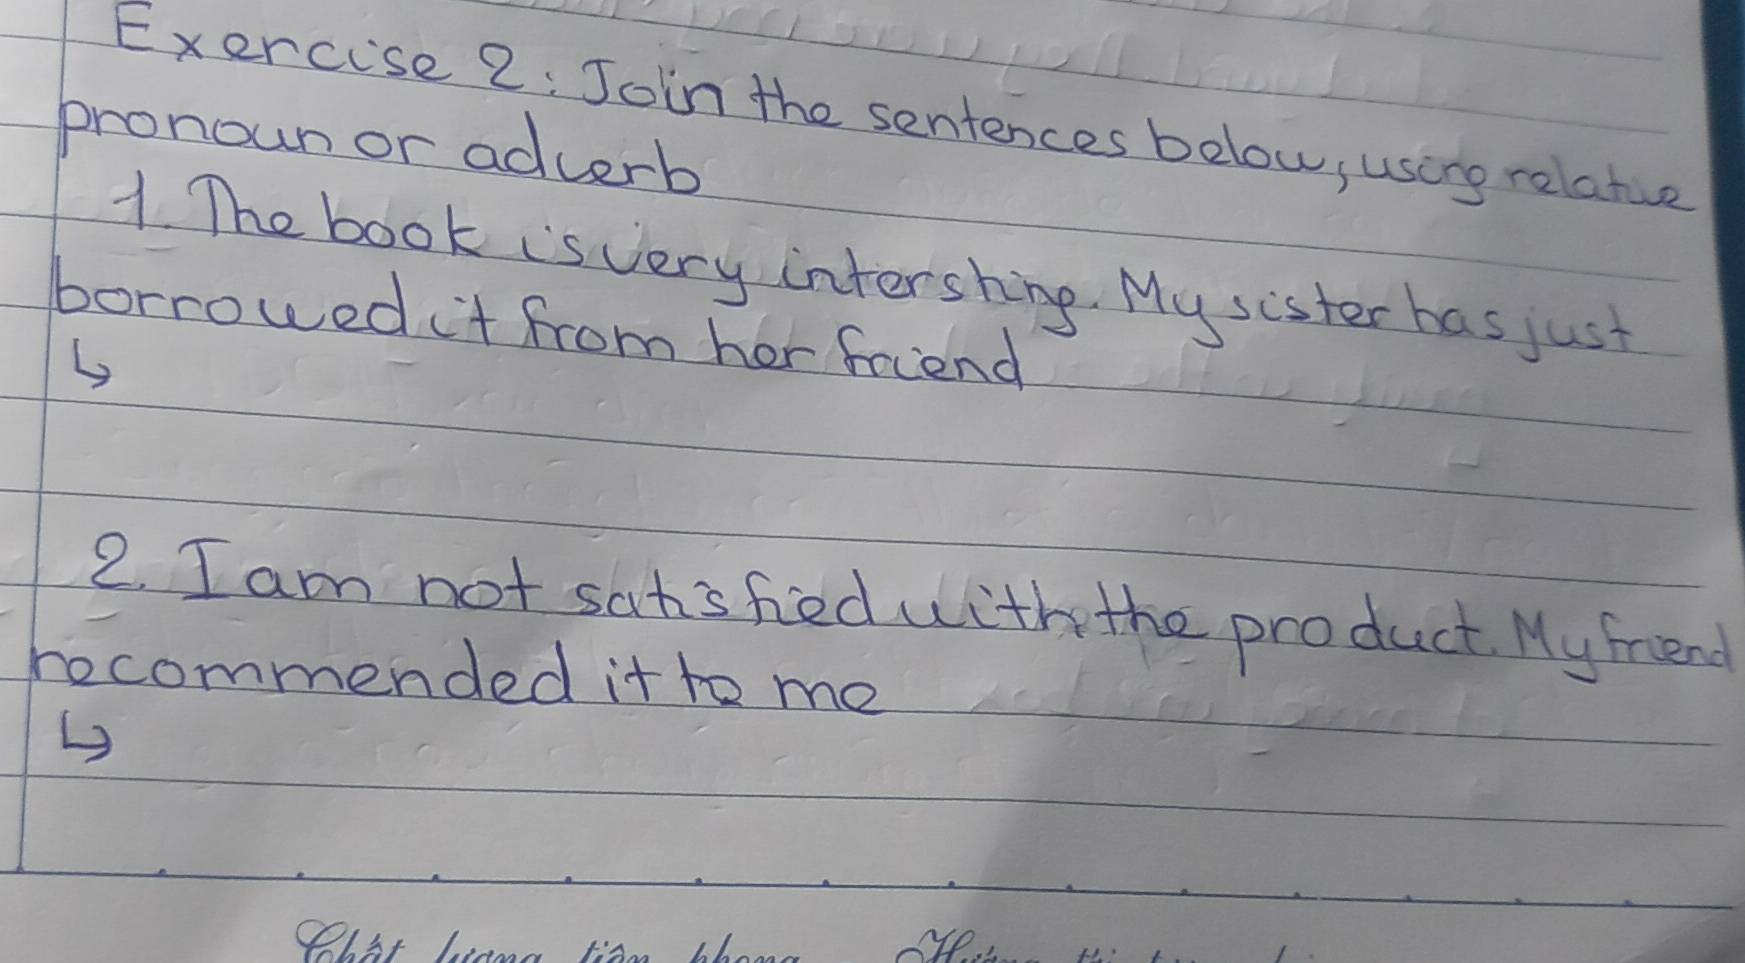 Exercise 2: Join the sentences below, using relative
pronoun or adverb
1. The book is very intersting. My sister has just
borrowed it from her friend
↳
2. I am not satisfied with the product. My friend
recommended it to me
↳
Chất lượng tiên phong